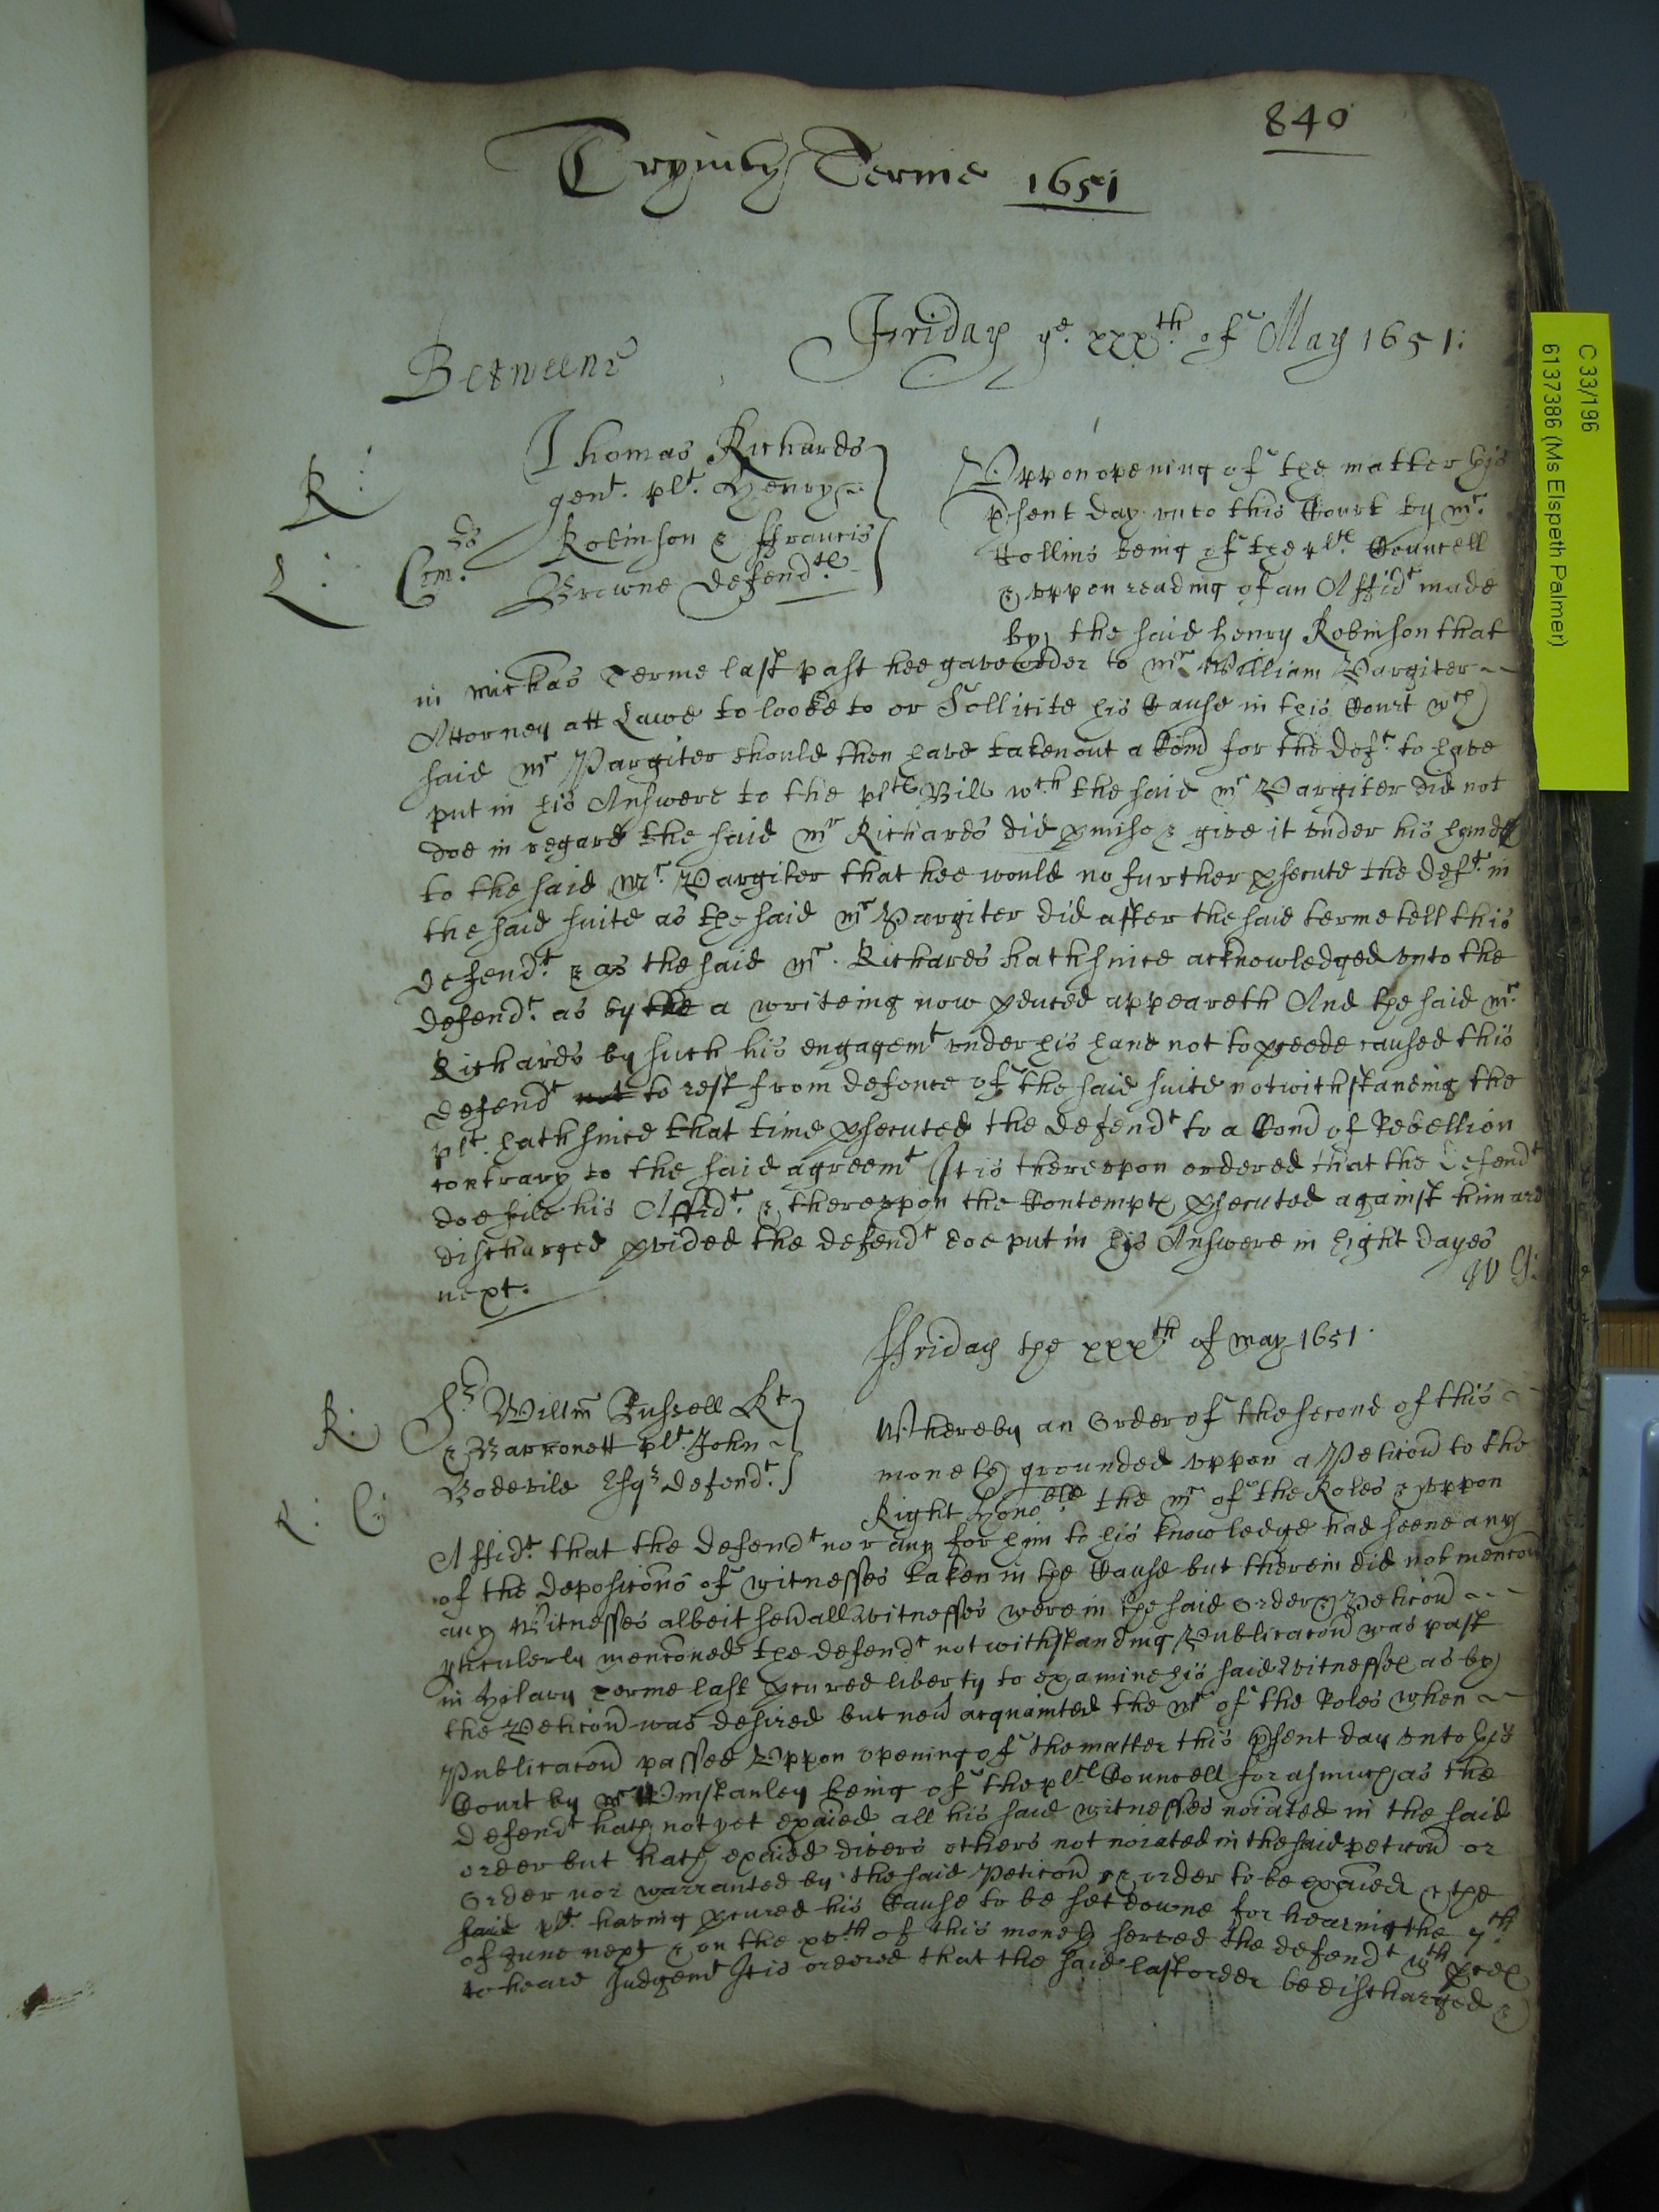 840
Trynity Terme 1651
Friday ye. xxxth. of May 1651:
Betweene
R:
L:
Thomas Richards
gent. plt. Henry
Robinson & ffrancis
Browne defendtes
Com.
Vppon opening of the matter this
psent day vnto this Court by mr.
Collins being of the pltes Councell
& vppon reading of an Affidt made
by the said henry Robinson that
in Michas Terme last past hee gave order to mr William Pargiter
Attorney att Lawe to looke to or Sollicite his Cause in this Court wch
said mr Pargiter should then have taken out a Com for the deft. to have
put in his Answere to the pltes Bill wch the said mr Pargiter did not
doe in regard the said mr Richards did pmise & give it vnder his hand
to the said Mr. Pargiter that hee would no further psecute the deft. in
the said suite as the said mr Pargiter did after the said terme tell this
defendt. & as the said mr. Richards hath since acknowledged vnto the
defendt. as by the a writeing now pduced appeareth And the said mr.
Richards by such his engagemt vnder his hand not to pceede caused this
defendt not to rest from defence of the said suite notwithstanding the
plt. hath since that time psecuted the defendt to a Com of Rebellion
contrary to the said agreemt It is therevpon ordered that the defendt
doe file his Affidt. & therevppon the Contempts psecuted against him are
discharged pvided the defendt doe put in his Answere in Eight dayes
next.
ffriday the xxxth of may 1651.
R:
L: C:
Sr Willm Russell Kt
& Barronett plt. John
Bodevile Esqr defendt.
Whereby an Order of the second of this
moneth grounded vppon a Peticon to the
Right Honoble the mr of the Roles & vppon
Affidt. that the defendt nor any for him to his knowledge had seene any
of the deposicons of witnesses taken in the Cause but therein did not mencon
any Witnesses albeit sevall witnesses were in the said order & Peticon
pticulerly menconed the defendt notwithstanding Publicacon was past
in Hilary Terme last pcured liberty to examine his said witnesses as by
the Peticon was desired but nev acquainted the mr of the Roles when
Publicacon passed Vppon opening of the matter this psent day vnto this
Court by mr Winstanley being of the pltes Councell forasmuch as the
defendt hath not yet exaied all his said witnesses noiated in the said
order but hath exaied divers others not noiated in the said peticon or
Order nor warranted by the said Peticon or order to be exaied & the
said plt. having pcured his Cause to be set downe for hearing the 7th
of June next & on the xvth of this moneth served the defendt wth pces
to heare Judgemt It is ordered that the said last order be discharged &
C 33/196
6137386 (Ms Elspeth Palmer)